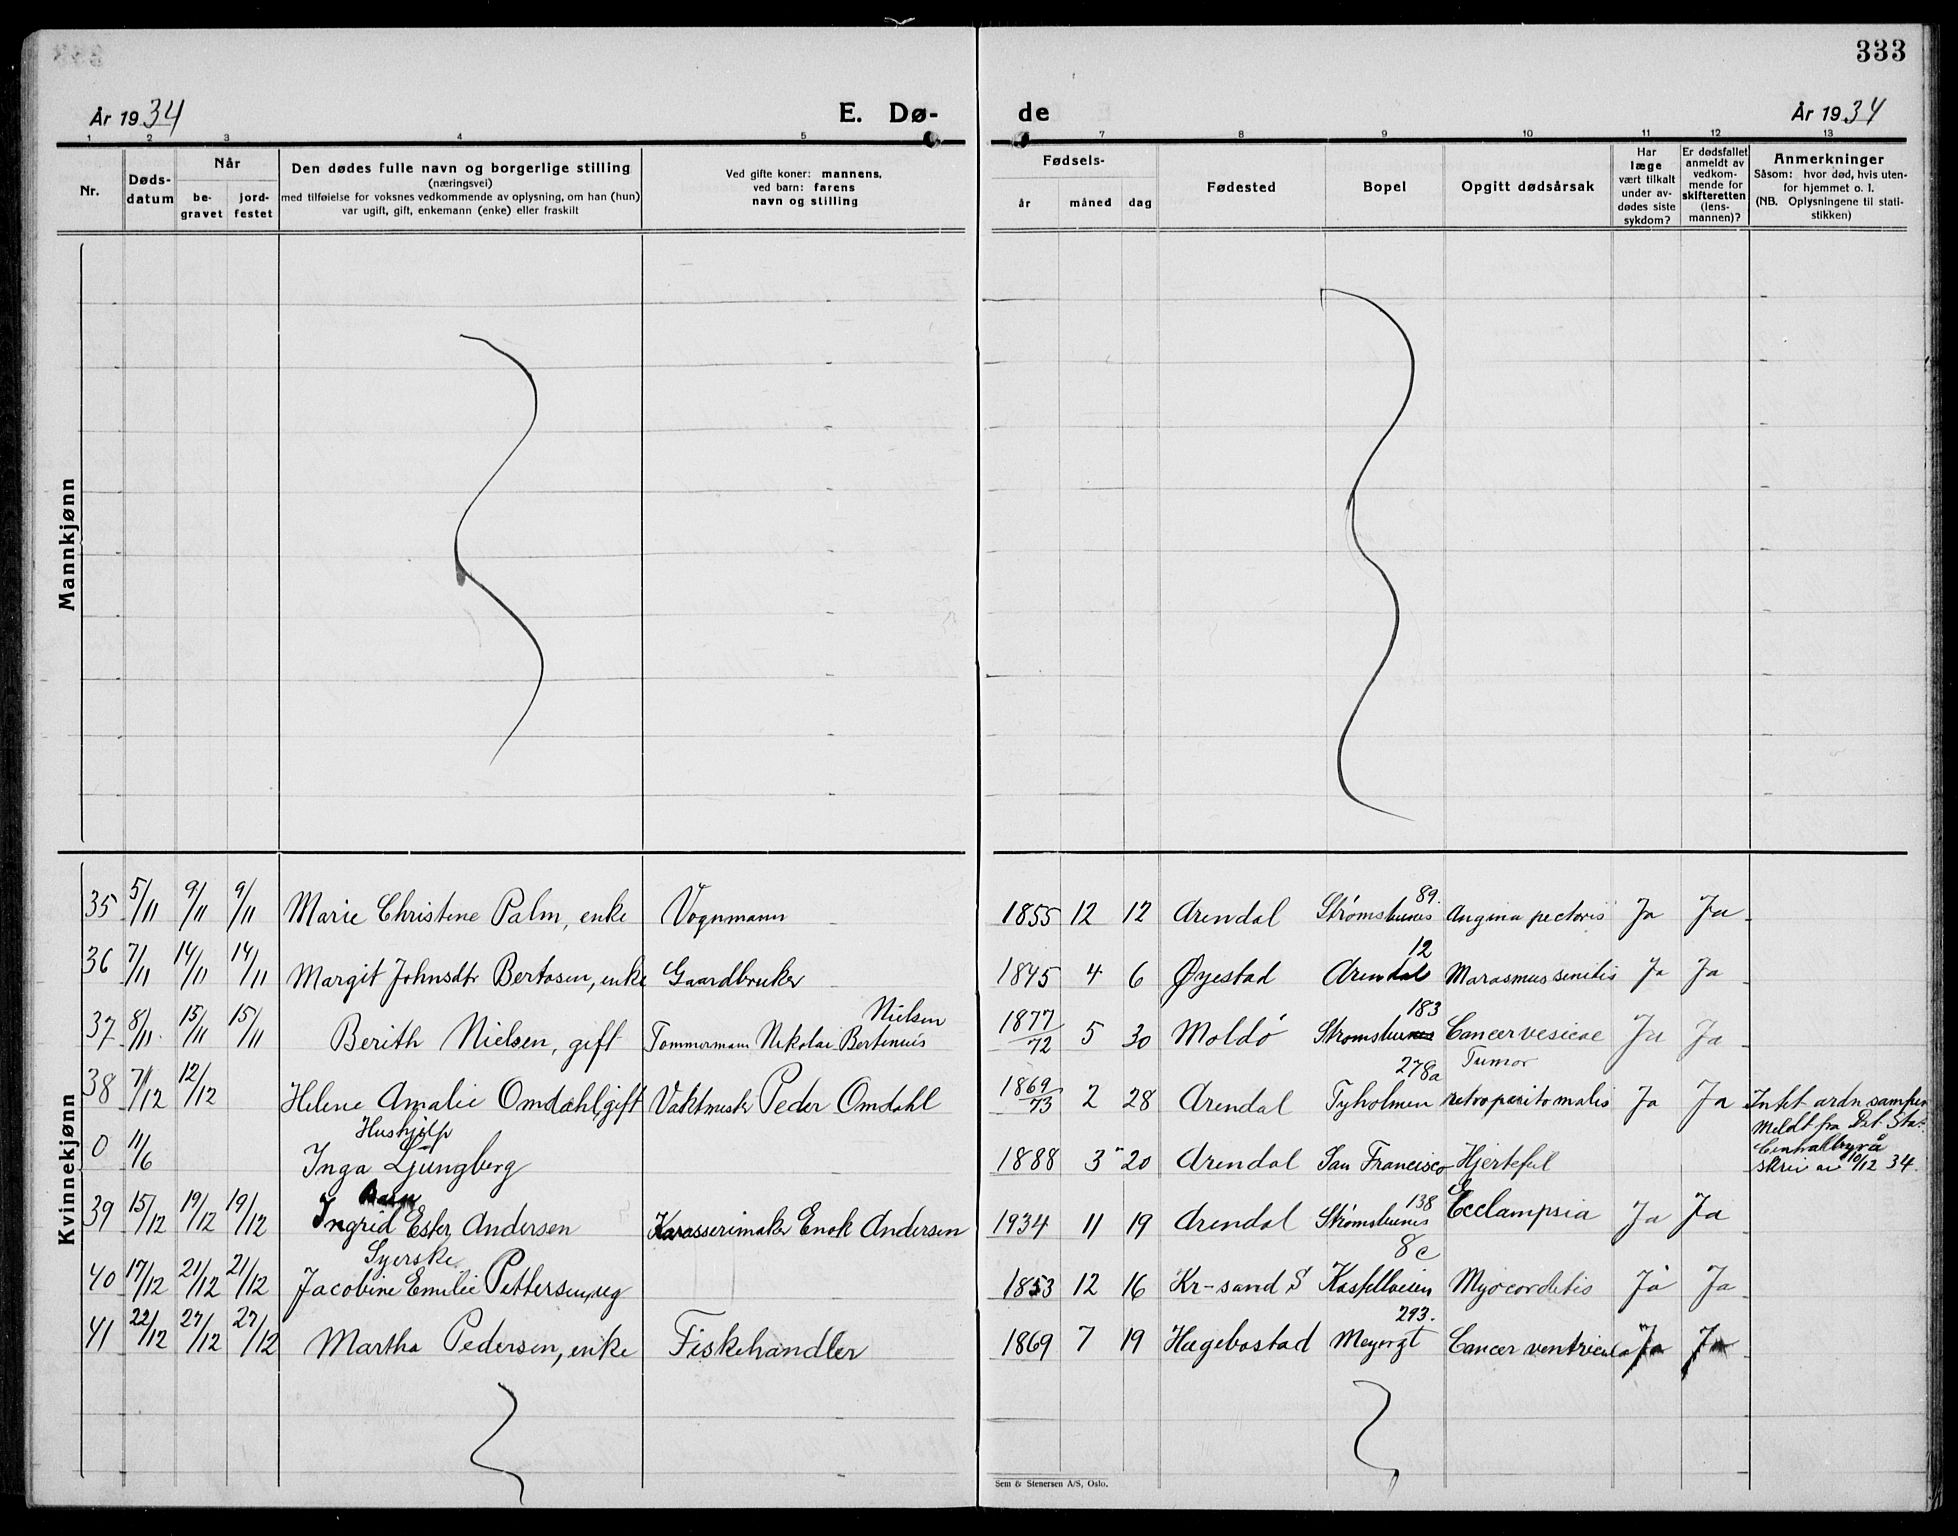 333
År 1934 E. Dø- de År 1934
1 2 3 4 5 7 8 9 10 11 12 13
Nr.
Døds-
datum
Når
be-
gravet
jord-
festet
Den dødes fulle navn og borgerlige stilling
(næringsvei)
med tilføielse for voksnes vedkommende av oplysning, om han (hun)
var ugift, gift, enkemann (enke) eller fraskilt
Ved gifte koner: mannens,
ved barn: farens
navn og stilling
Fødsels-
år måned dag
Fødested
Bopel
Opgitt dødsårsak
Har
læge
vært tilkalt
under av-
dødes siste
sykdom?
Er dødsfallet
anmeldt av
vedkom-
mende for
skifteretten
(lens-
mannen)?
Anmerkninger
Såsom: hvor død, hvis uten-
for hjemmet o. l.
(NB. Oplysningene til stati-
stikken)
Mannkjønn
Kvinnekjønn
89.
35 5/11 9/11 9/11 Marie Christene Palm, enke Vognmann 1855 12 12 Arendal Strømsbunes Angina pectoris Ja Ja
12
36 7/11 14/11 14/11 Margit Johnsdtr Bertosen, enke Gaardbruker 1845 4 6 Øyestad Arendal Marasmus senilis Ja Ja
Nielsen 183
37 8/11 15/11 15/11 Berith Nielsen, gift Tømmermann Nikolai Bertinius 1877/72 5 30 Moldö Strømsbunes Cancer vesicae Ja Ja
278a Tumor
38 7/12 12/12 Helene Amalie Omdahl, gift Vaktmester Peder Omdahl 1869/73 2 28 Arendal Tyholmen retroperitomalis Ja Ja Intet ordn samfun
Hushjelp Meldt fra Det. Stat.
0 11/6 Inga Ljungberg 1888 3 20 Arendal San Francisco Hjertefeil Centralbyrå
skriv av 10/12 34.
Barn 138
39 15/12 19/12 19/12 Ingrid Ester Andersen Karasserimaker Enok Andersen 1934 11 19 Arendal Strømsbunes Ecclampsia Ja Ja
Syerske 8c
40 17/12 21/12 21/12 Jacobine Emilie Pettersen, ug 1853 12 16 Kr-sand S Kastellveien Myocorditis Ja Ja
293.
41 22/12 27/12 27/12 Martha Pedersen, enke Fiskehandler 1869 7 19 Hægebostad Meyergt Cancer ventriculi Ja Ja
Sem & Stenersen A/S, Oslo.